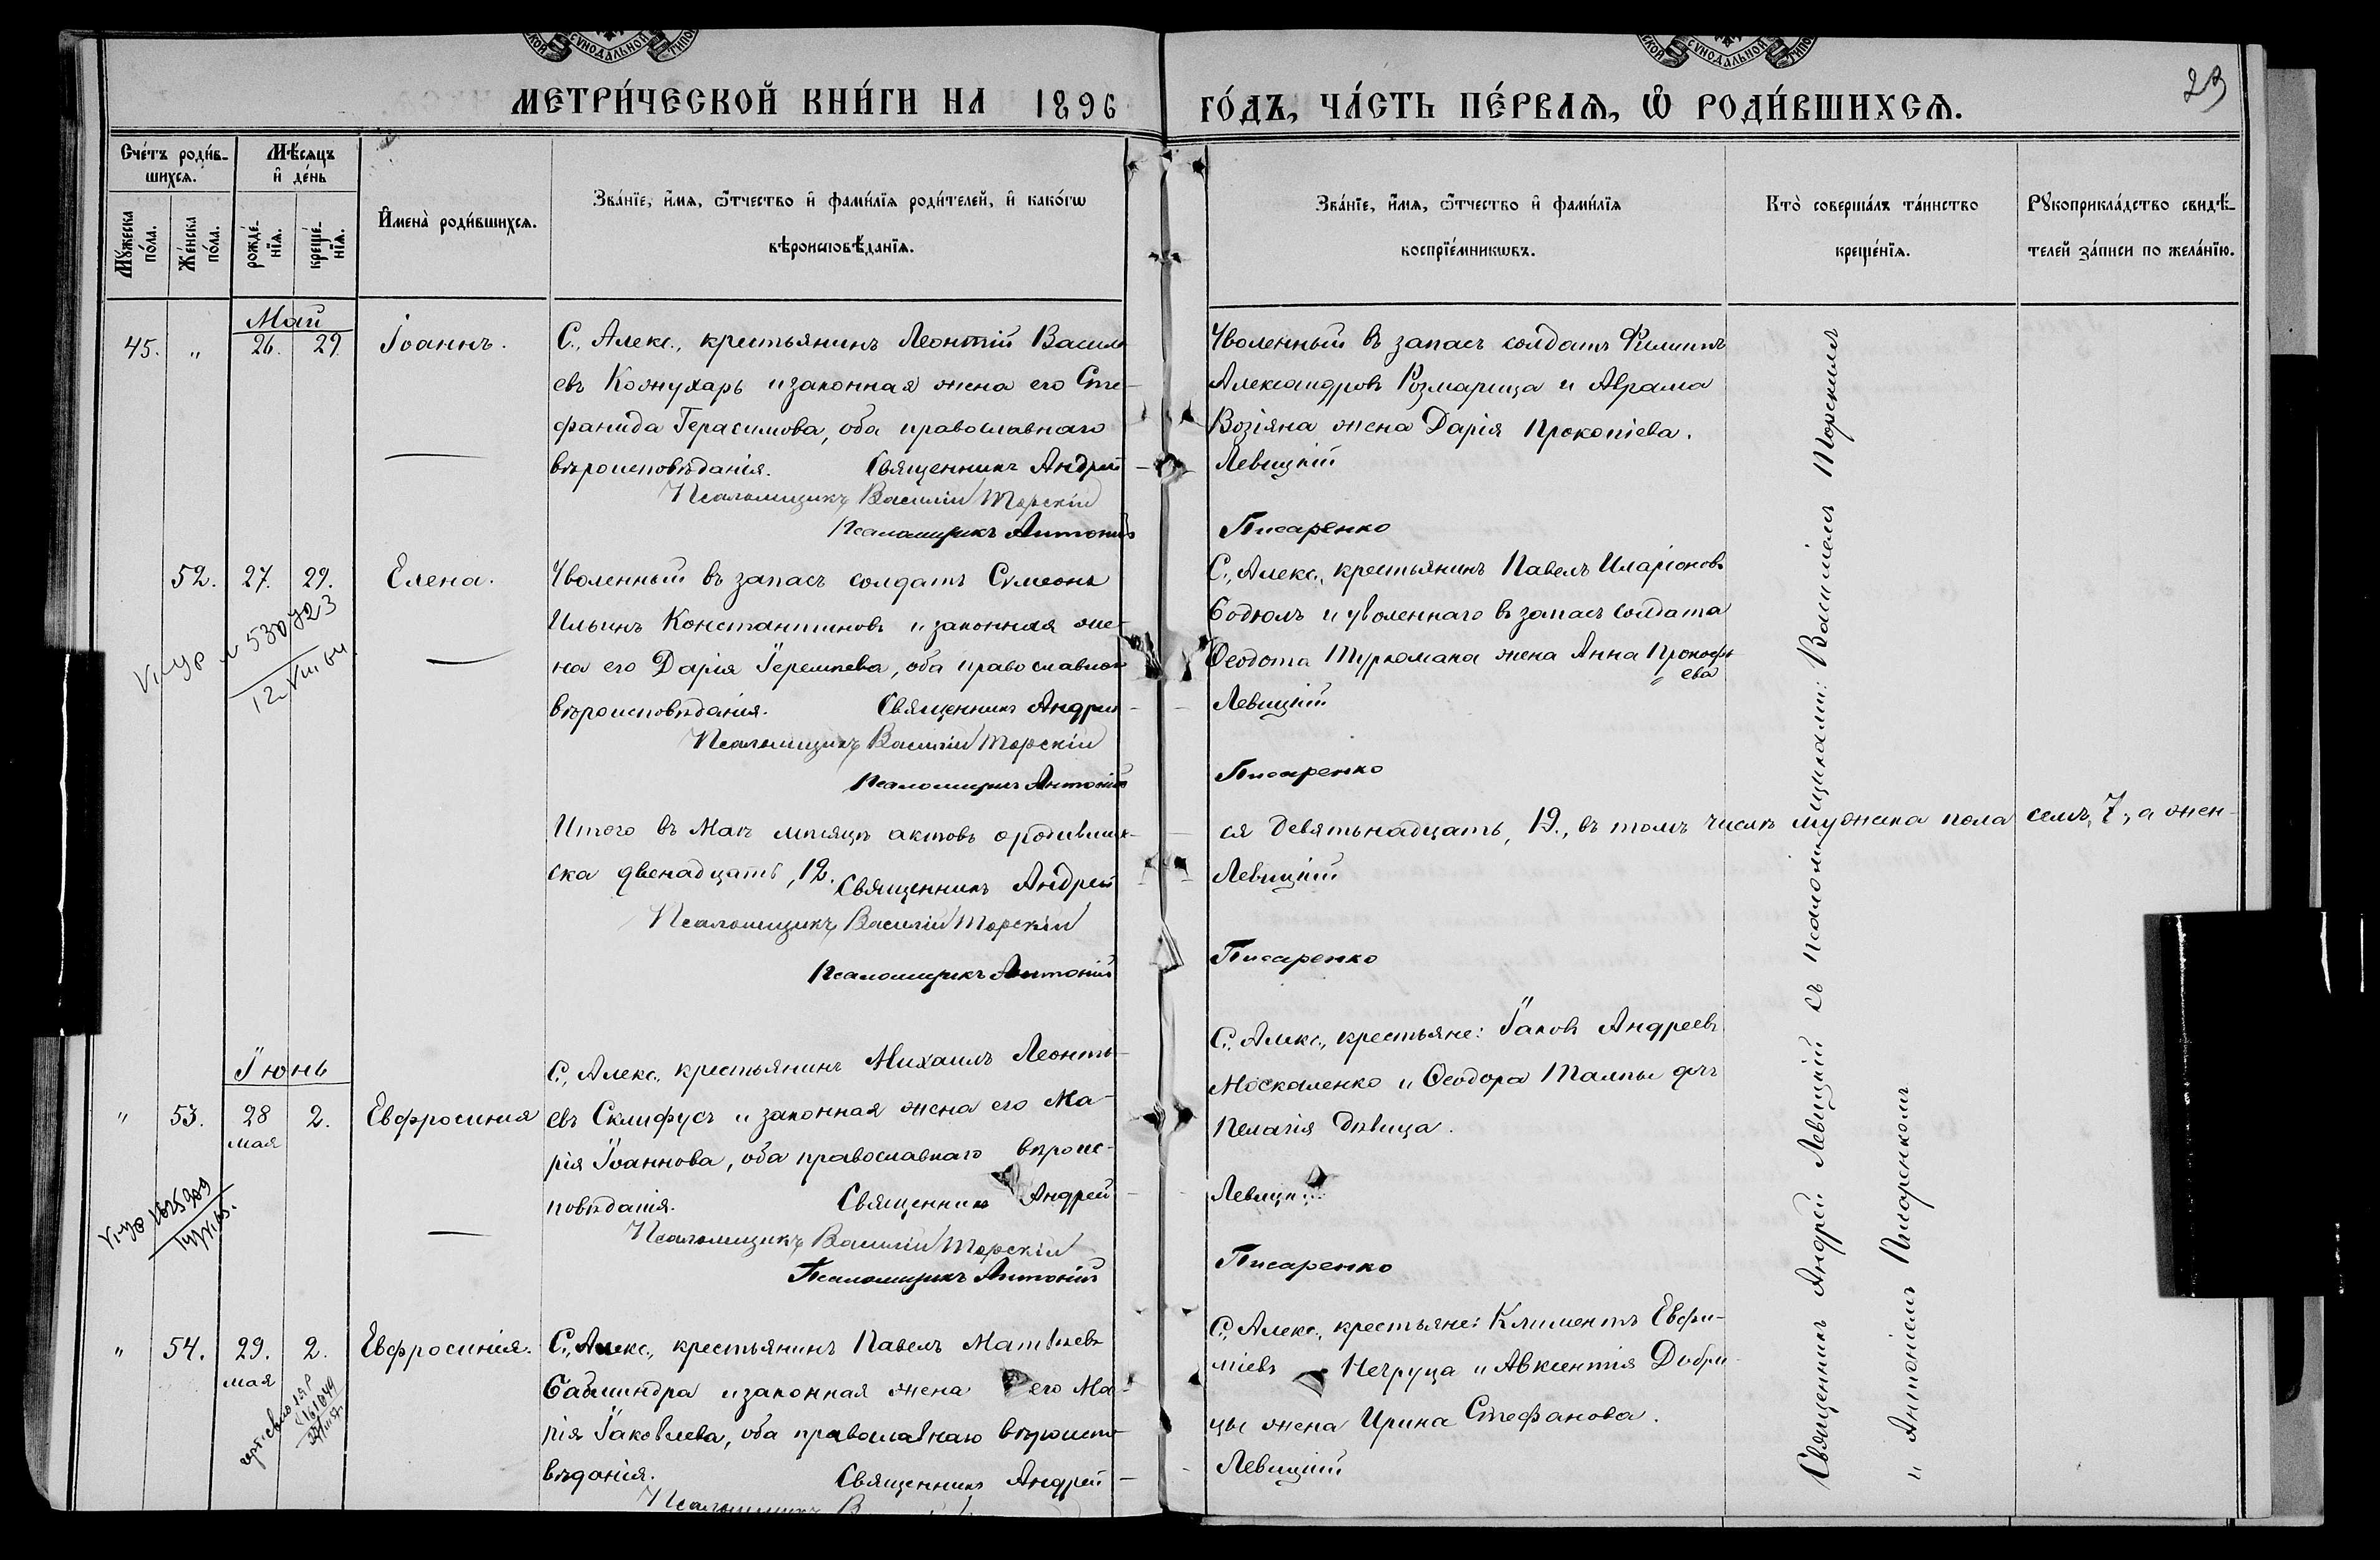 МЕТРИ́ЧЕСКОЙ КНИ́ГИ НА 1896
ГО́ДЪ, ЧА́СТЬ ПЕ́РВАЯ, Ѿ РОДИ́ВШИХСЯ.
23
Сче́тъ роди́в-
шихся.
Мѣ́сяцъ
и҆ де́нь
Му́жеска
по́ла.
Же́нска
по́ла.
рожде́-
нїя.
креще́-
нїя.
И҆мена̀ роди́вшихся.
Зва́нїе, и҆́мя, ѻ҆́тчество и҆ фами́лїя роди́телей, и҆ како́гѡ
вѣроисповѣ́данїя.
Зва́нїе, и҆́мя, ѻ҆́тчество и҆ фами́лїя
воспрїе́мникѡвъ.
Кто̀ соверша́лъ та́инство
креще́нїя.
Рꙋкоприкла́дство свидѣ́-
телей за́писи по жела́нїю.
Май
45. " 26. 29. Іоаннъ.
С., Алекс., крестьянинъ Леонтій Василь
евъ Кожухарь и законная жена его Сте-
фанида Герасимова, оба православнаго
вѣроисповѣданія. Священникъ Андрей
Псаломщикъ Василій Торскій
Псаломщикъ Антоній
Уволенный въ запасъ солдатъ Филиппъ
Александровъ Розмарица и Аврама
Возіяна жена Дарія Прокопіева.
Левицкій
Писаренко
52. 27. 29. Елена.
Уволенный въ запасъ солдатъ Сѵмеонъ
Ильинъ Константиновъ и законная же-
на его Дарія Іереміева, оба православнаго
вѣроисповѣданія. Священникъ Андрей
Псаломщикъ Василій Торскій
Псаломщикъ Антоній
С., Алекс., крестьянинъ Павелъ Иларіоновъ
Бодюлъ и уволеннаго въ запасъ солдата
Ѳеодота Туркомана жена Анна Прокофь
ева
Левицкій
Писаренко
Итого въ Маѣ мѣсяцѣ актовъ о родивших-
ся девятьнадцать, 19., въ томъ числѣ мужска пола семь, 7., а жен-
ска двенадцать, 12. Священникъ Андрей
Левицкій
Псаломщикъ Василій Торскій
Псаломщикъ Антоній
Писаренко
Іюнь
" 53. 28 2. Евфросинія
мая
С., Алекс., крестьянинъ Михаилъ Леонть-
евъ Склифусъ и законная жена его Ма-
рія Іоаннова, оба православнаго вѣроис-
повѣданія. Священникъ Андрей
Псаломщикъ Василій Торскій
Псаломщикъ Антоній
С., Алекс., крестьяне: Іаковъ Андреевъ
Москаленко и Ѳеодора Талпы дочь
Пелагія дѣвица.
Левицкій
Писаренко
" 54. 29. 2. Евфросинія.
мая
С., Алекс., крестьянинъ Павелъ Матѳіевъ
законная жена его Ма-
рія Іаковлева, оба православнаго вѣроиспо-
вѣданія. Священникъ Андрей
С., Алекс., крестьяне: Климентъ Евфи-
міевъ Негруца и Авксентія Добри-
цы жена Ирина Стефанова.
Левицкій
Священникъ Андрей Левицкій съ псаломщиками: Василіемъ Торскимъ
и Антоніемъ Писаренкомъ